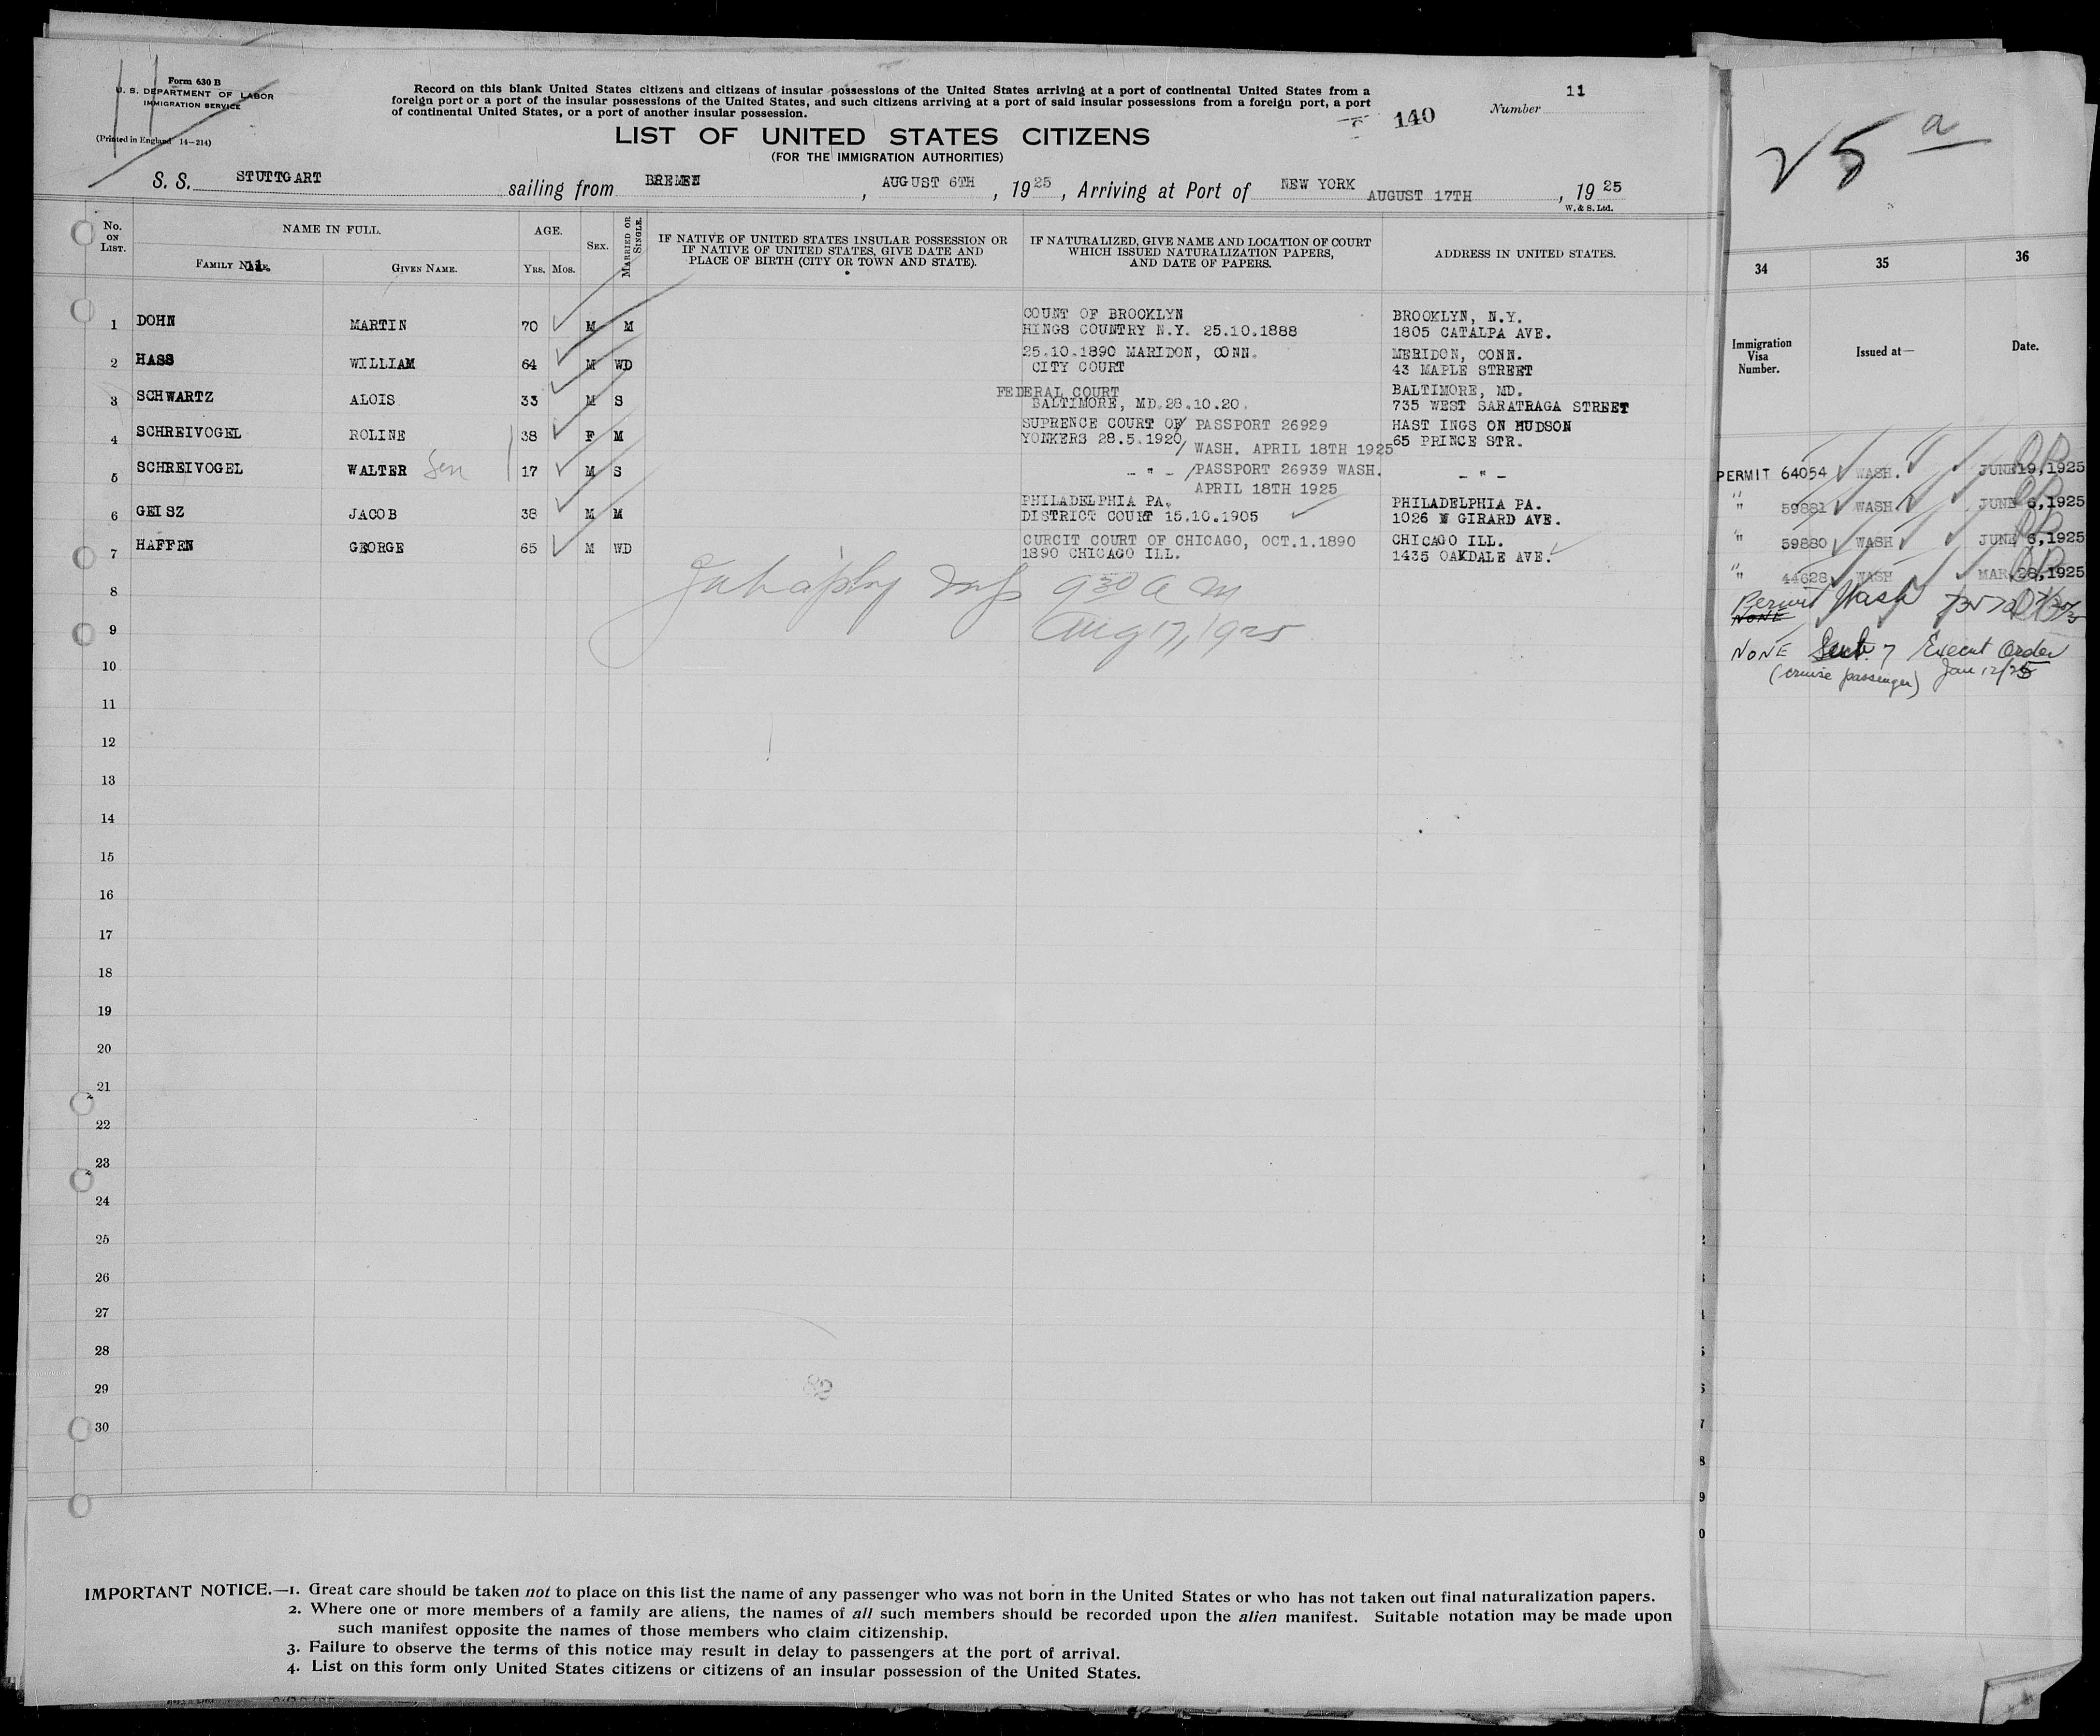 Form 630 B
U. S. DEPARTMENT OF LABOR
IMMIGRATION SERVICE
(Printed in England 14-214)
Record on this blank United States citizens and citizens of insular possessions of the United States arriving at a port of continental United States from a
foreign port or a port of the insular possessions of the United States, and such citizens arriving at a port of said insular possessions from a foreign port, a port
of continental United States, or a port of another insular possession.
140
Number 11
LIST OF UNITED STATES CITIZENS
(FOR THE IMMIGRATION AUTHORITIES)
S. S. STUTTGART sailing from BREMEN, AUGUST 6TH, 1925, Arriving at Port of NEW YORK AUGUST 17TH, 1925
W. & S. Ltd.
No. ON LIST.
NAME IN FULL.
FAMILY NAME. 11.
GIVEN NAME.
AGE.
YRS. MOS.
SEX.
MARRIED OR SINGLE.
IF NATIVE OF UNITED STATES INSULAR POSSESSION OR
IF NATIVE OF UNITED STATES, GIVE DATE AND
PLACE OF BIRTH (CITY OR TOWN AND STATE).
IF NATURALIZED, GIVE NAME AND LOCATION OF COURT
WHICH ISSUED NATURALIZATION PAPERS,
AND DATE OF PAPERS.
ADDRESS IN UNITED STATES.
1 DOHN MARTIN 70 M M COUNT OF BROOKLYN BROOKLYN, N.Y.
HINGS COUNTRY N.Y. 25.10.1888 1805 CATALPA AVE.
2 HASS WILLIAM 64 M WD 25.10.1890 MARIDON, CONN. MERIDON, CONN.
CITY COURT 43 MAPLE STREET
3 SCHWARTZ ALOIS 33 M S FEDERAL COURT BALTIMORE, MD.
BALTIMORE, MD.28.10.20. 735 WEST SARATRAGA STREET
4 SCHREIVOGEL ROLINE 38 F M SUPRENCE COURT OF/ PASSPORT 26929 HAST INGS ON HUDSON
YONKERS 28.5.1920/ WASH. APRIL 18TH 1925 65 PRINCE STR.
5 SCHREIVOGEL WALTER Son 17 M S - " - /PASSPORT 26939 WASH. - " -
APRIL 18TH 1925
6 GEISZ JACOB 38 M M PHILADELPHIA PA. PHILADELPHIA PA.
DISTRICT COURT 15.10.1905 1026 W GIRARD AVE.
7 HAFFEN GEORGE 65 M WD CURCIT COURT OF CHICAGO, OCT.1.1890 CHICAGO ILL.
1890 CHICAGO ILL. 1435 OAKDALE AVE.
8
9 30 a m
9
Aug 17, 1925
10
11
12
13
14
15
16
17
18
19
20
21
22
23
24
25
26
27
28
29
82
30
IMPORTANT NOTICE.—1. Great care should be taken not to place on this list the name of any passenger who was not born in the United States or who has not taken out final naturalization papers.
2. Where one or more members of a family are aliens, the names of all such members should be recorded upon the alien manifest. Suitable notation may be made upon
such manifest opposite the names of those members who claim citizenship.
3. Failure to observe the terms of this notice may result in delay to passengers at the port of arrival.
4. List on this form only United States citizens or citizens of an insular possession of the United States.
25 a
34 35 36
Immigration Visa Number.
Issued at—
Date.
PERMIT 64054 WASH. JUNE 19, 1925
" 59881 WASH JUNE 6, 1925
" 59880 WASH JUNE 6, 1925
" 44628 WASH MAR. 28, 1925
Permit Wash
NONE
NONE Sect. 7 Execut Order
(cruise passenger) Jan 12/25